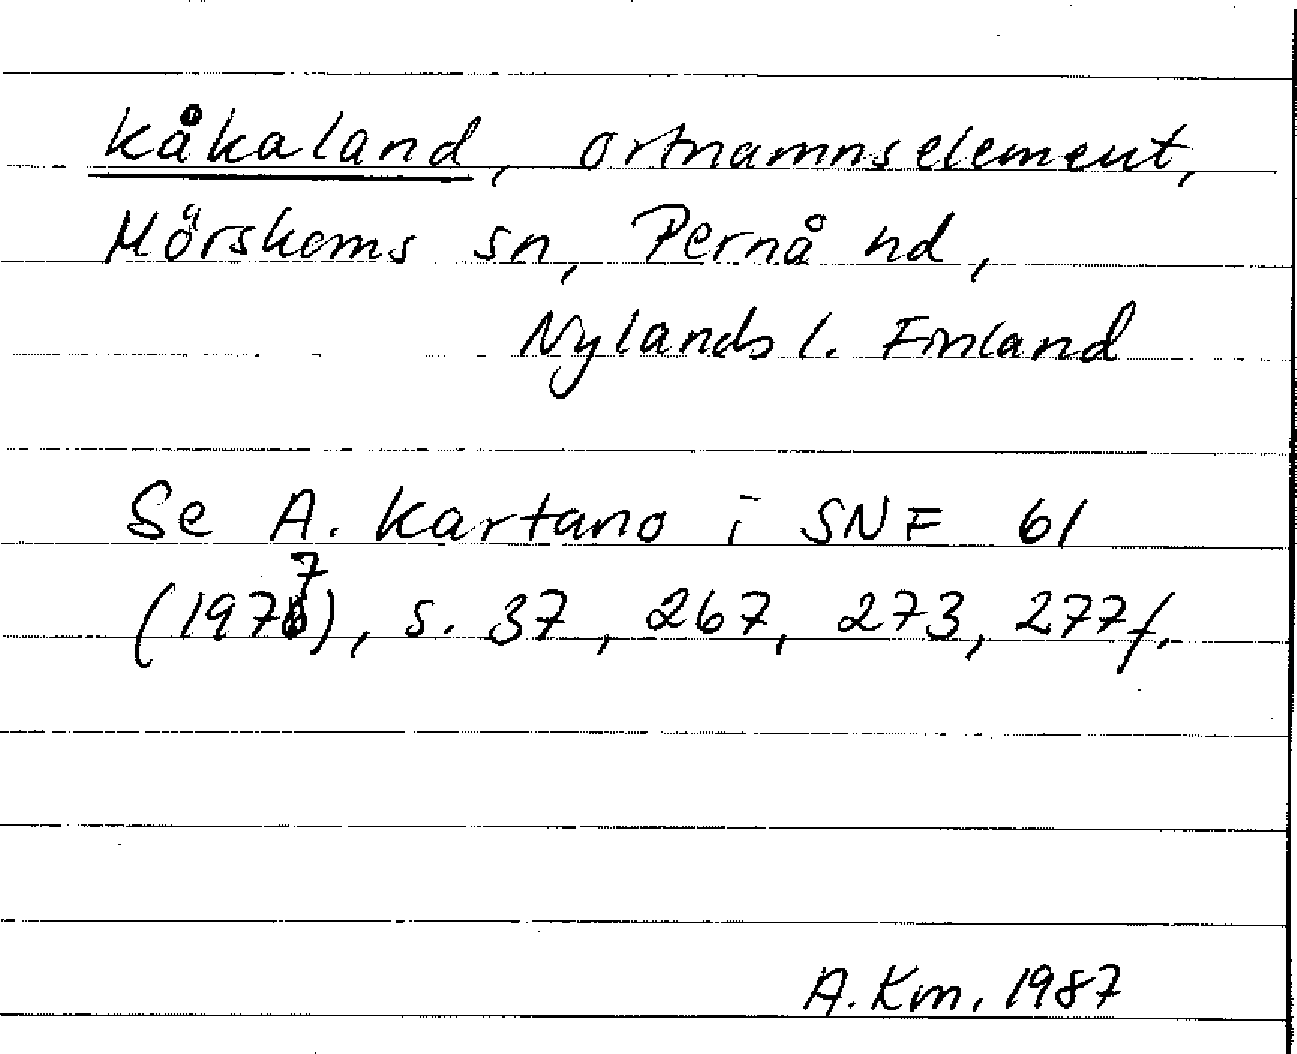 Kåkaland, ortnamnselement,
Mörskoms sn, Pernå hd,
Nylands l. Finland
Se A. Kartano i SNF 61
(1977), s. 37, 267, 273, 277f.
A. Km. 1987